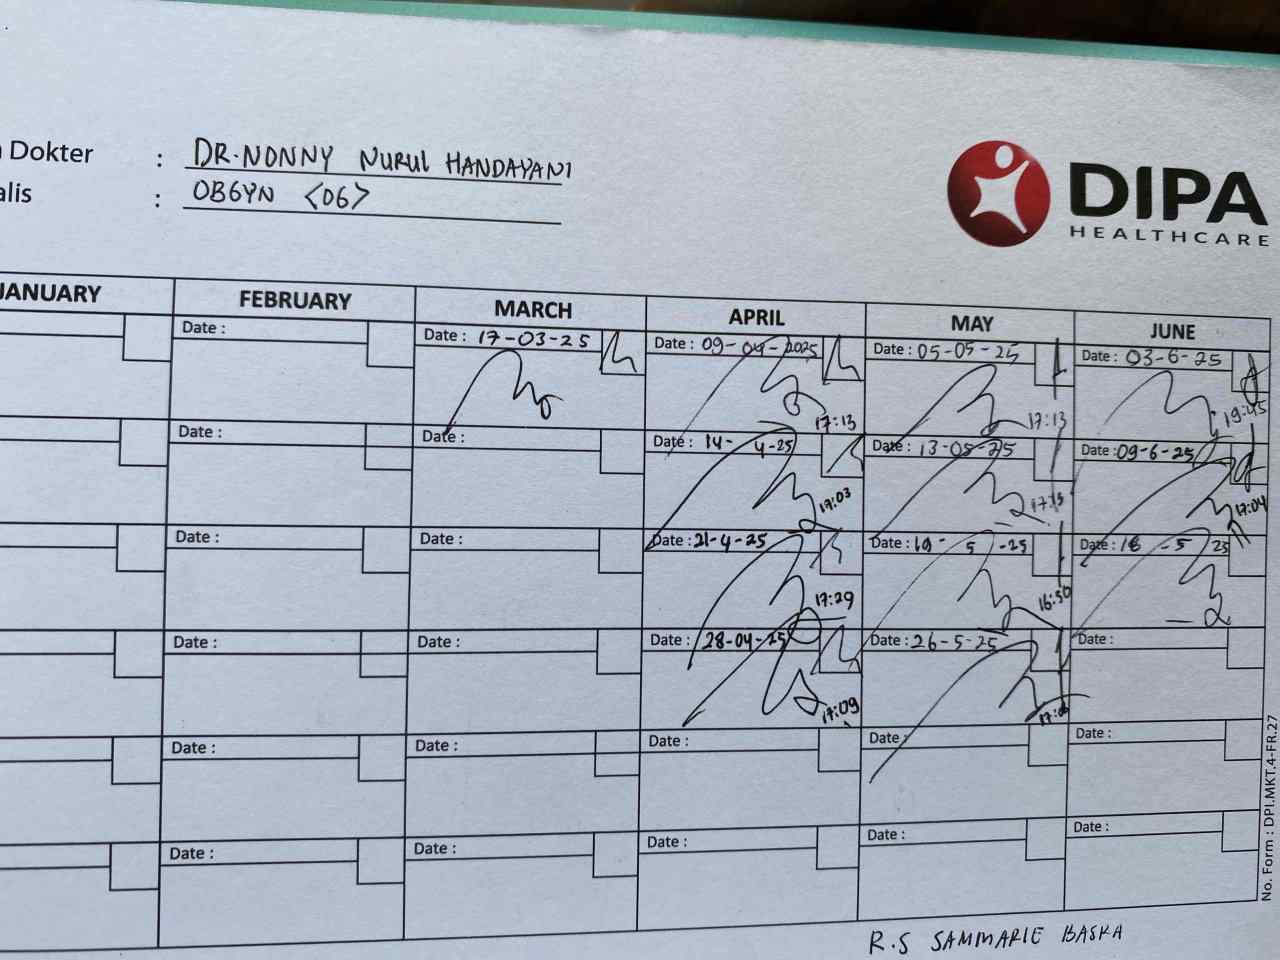 n Dokter : DR. NONNY NURUL HANDAYANI
alis : OBGYN <06>
DIPA
HEALTHCARE
JANUARY FEBRUARY MARCH APRIL MAY JUNE
Date : Date : 17-03-25 Date : 09-04-2025 Date : 05-05-25 Date : 03-6-25
17:13 17:13 19:45
Date : Date : Date : 14- 4-25 Date : 13-05-25 Date : 09-6-25
17:03 17:04
Date : Date : Date : 21-4-25 Date : 19- 5 -25 Date : 16 -5 25
17:29 16:50
Date : Date : Date : 28-04-25 Date : 26-5-25 Date :
17:09
Date : Date : Date : Date : Date :
Date : Date : Date : Date : Date :
No. Form : DPI.MKT.4-FR.27
R.S SAMMARIE BASRA